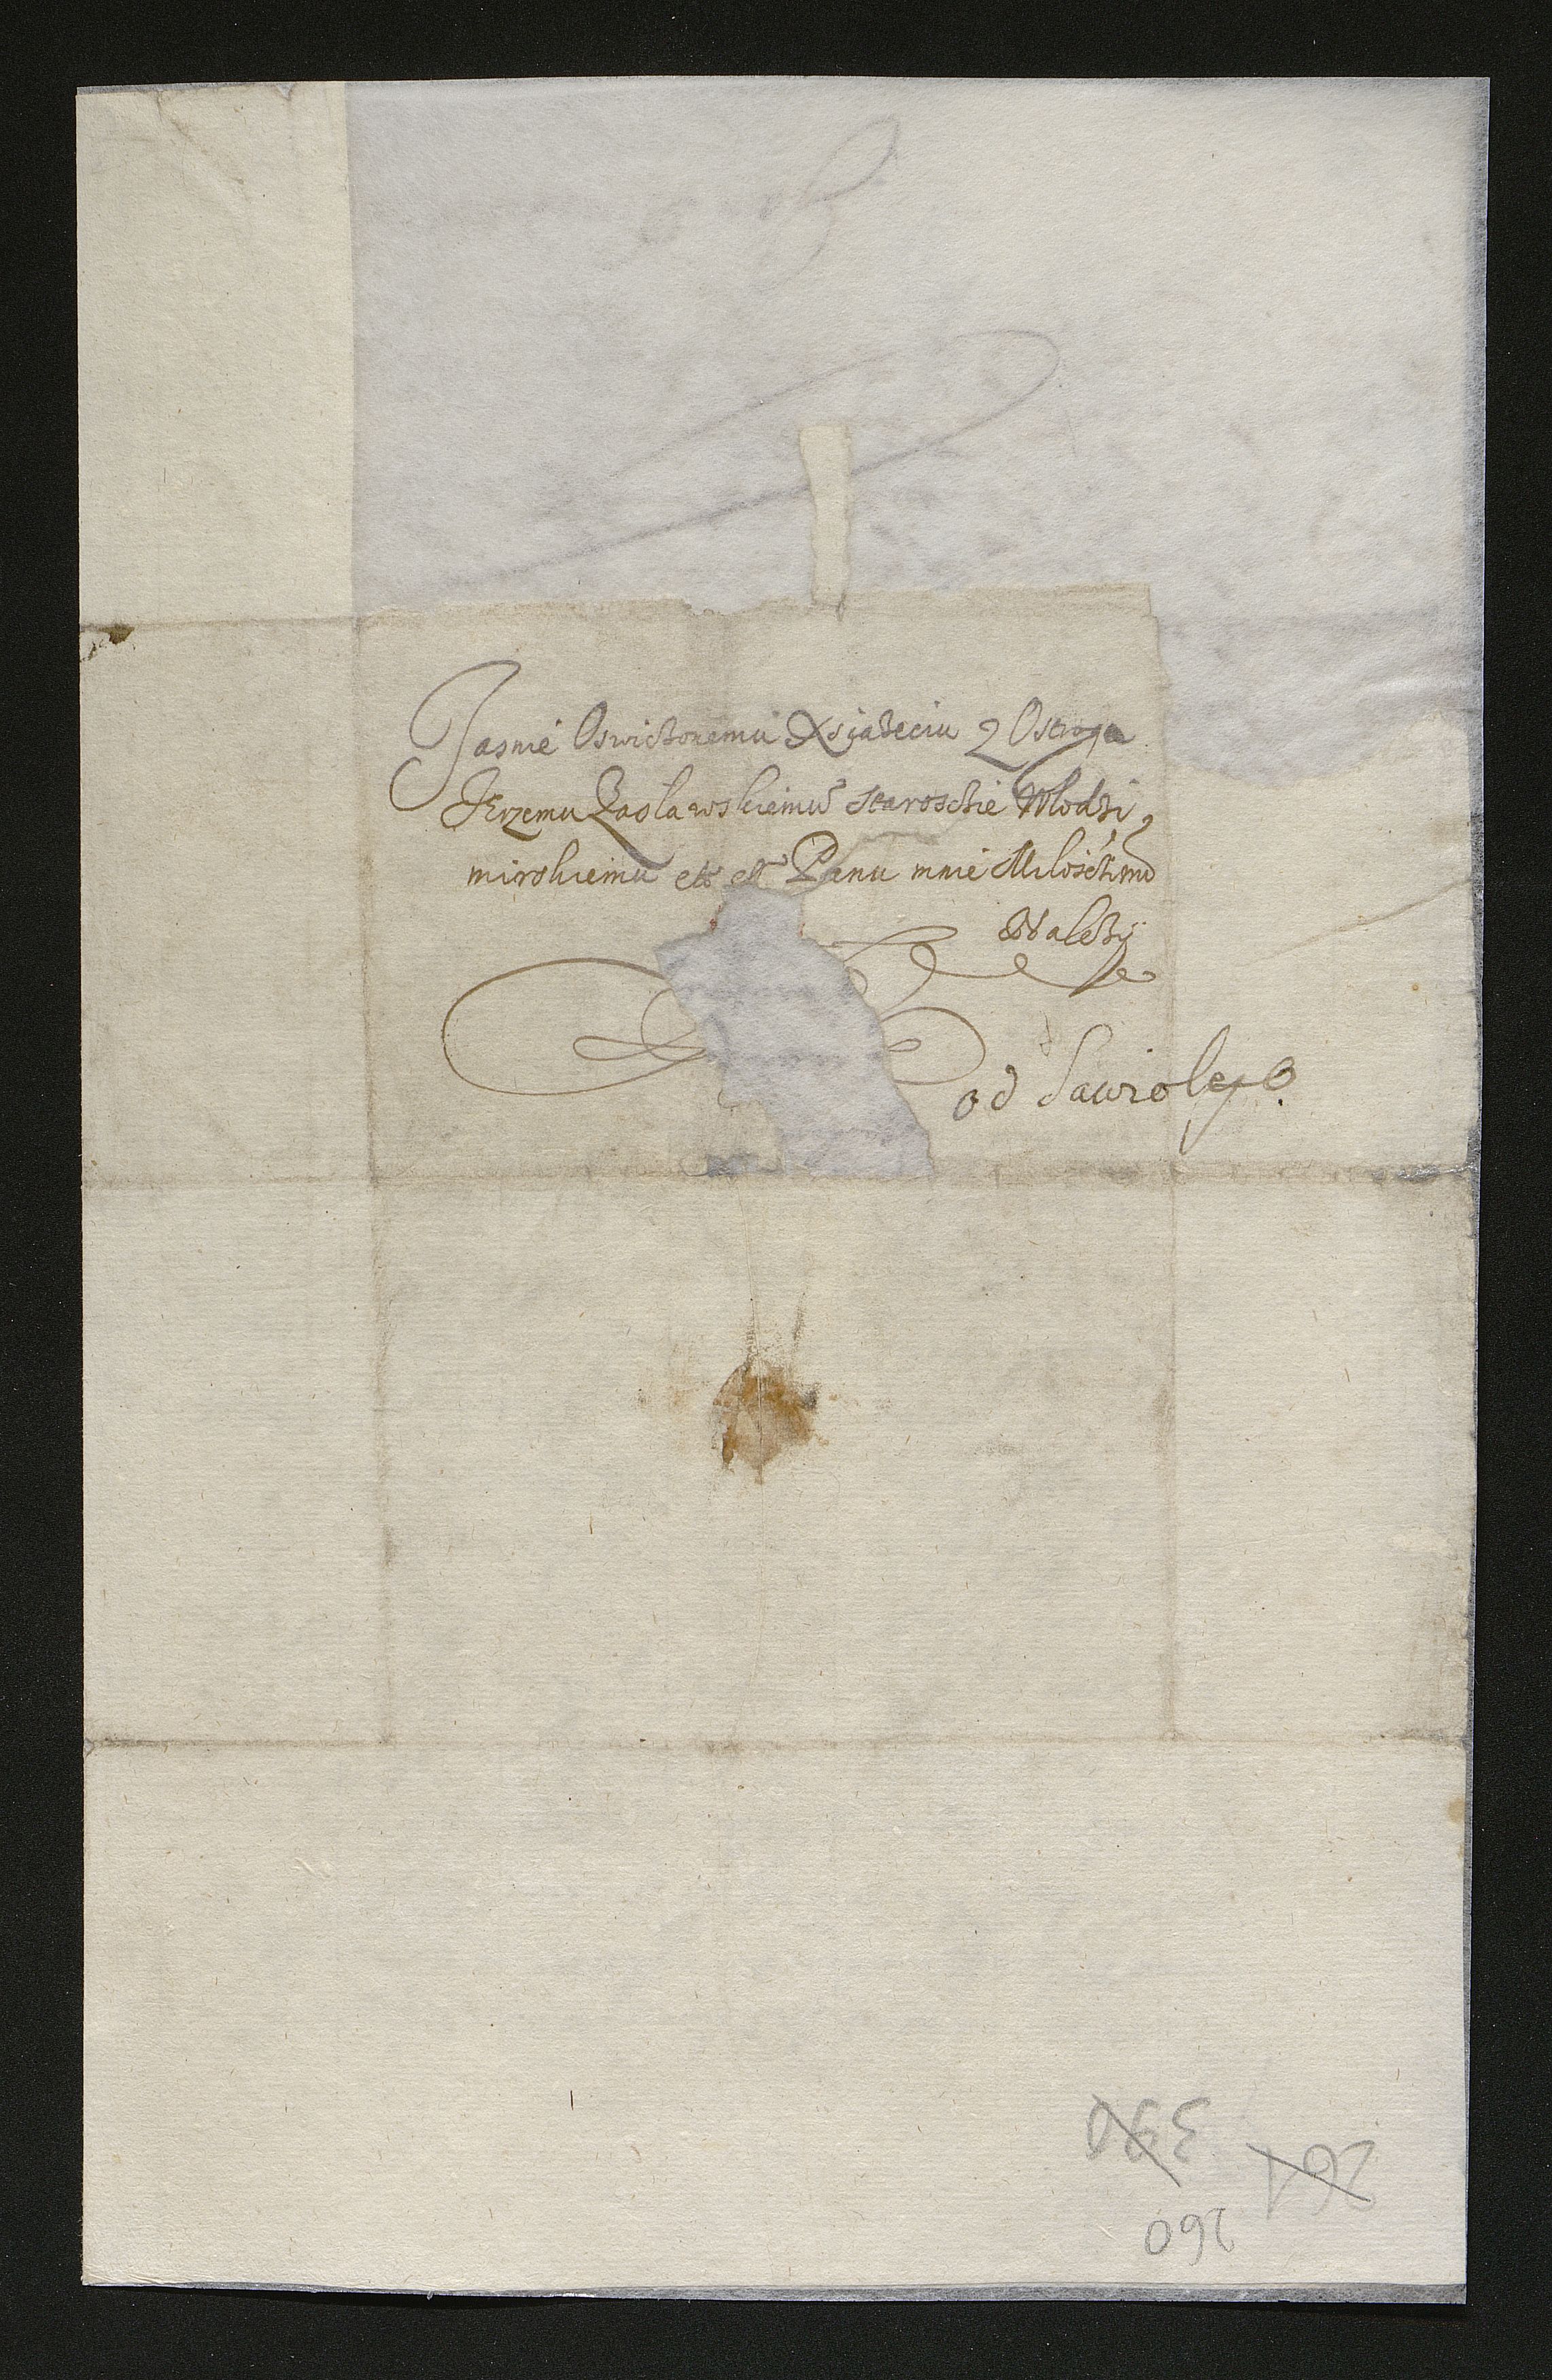 Jasnie Oswieczonemu Xsiązeciu z Ostroga
Jerzemu Zaslawskiemu starosczie Wlodzi,
mirskiemu etc etc Panu mnie Miłoscziwemu
Należy
od Sawiolego.
260